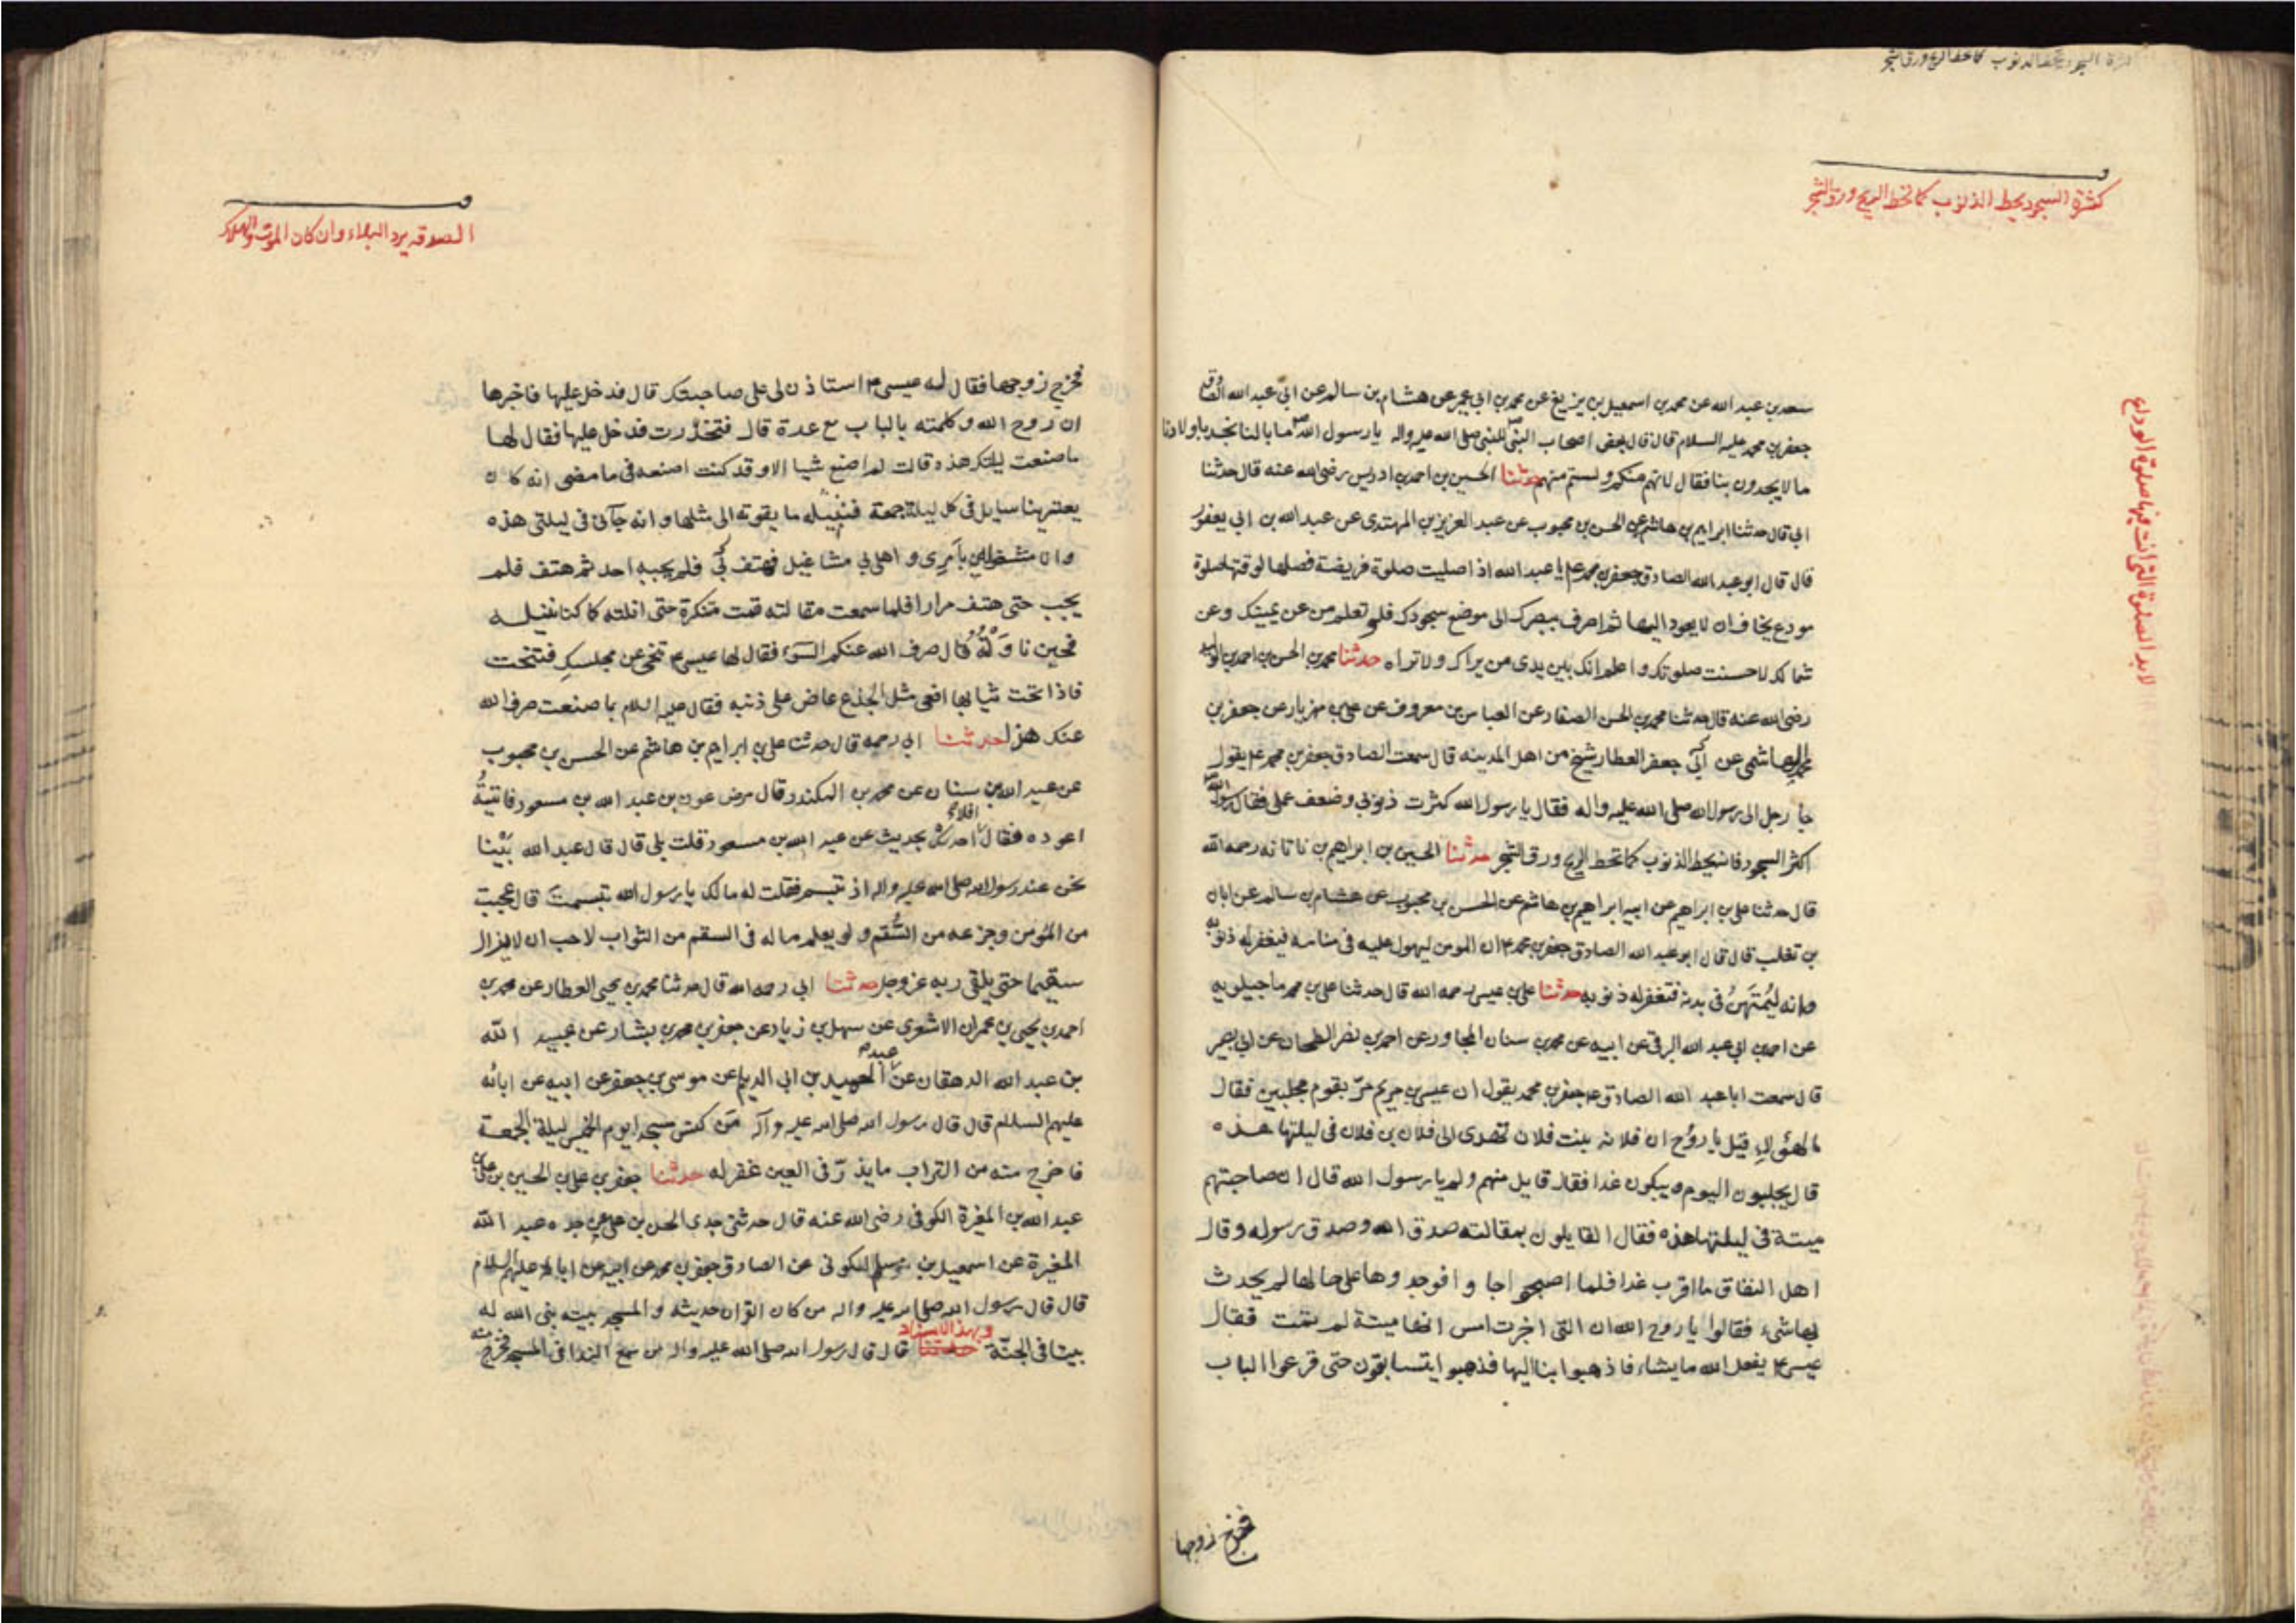 كثرة السجود يحط الذنوب كما تحط الريح ورق الشجر
كثرة السجود يحط الذنوب كما تحط الريح ورق الشجر
لابد الصلوة التى انت فيها صلوة الوداع
سعد بن عبد الله عن محمد بن اسمعيل بن بزيع عن محمد بن ابي عمير عن هشام بن سالم عن ابي عبد الله الصادق
جعفر بن محمد عليه السلام قال قال بعض اصحاب النبى للنبى صلى الله عليه واله يا رسول الله ما بالنا نجد باولادنا
ما لا يجدون بنا فقال لانهم منكم ولستم منهم حدثنا الحسين بن احمد بن ادريس رضى الله عنه قال حدثنا
ابي قال حدثنا ابراهيم بن هاشم عن الحسن بن محبوب عن عبد العزيز بن المهتدى عن عبد الله بن ابي يعفور
قال قال ابو عبد الله الصادق جعفر بن محمد ع يا عبد الله اذا صليت صلوة فريضة فصلها لوقتها صلوة
مودع يخاف ان لا يعود اليها ثم اصرف ببصرك الى موضع سجودك فلو تعلم من عن يمينك وعن
شمالك لاحسنت صلوتك واعلم انك بين يدى من يراك ولا تراه حدثنا محمد بن الحسن بن احمد بن الوليد
رضى الله عنه قال حدثنا محمد بن الحسن الصفار عن العباس بن معروف عن على بن مهزيار عن جعفر بن
محمد الهاشمى عن ابي جعفر العطار شيخ من اهل المدينه قال سمعت الصادق جعفر بن محمد ع يقول
جا رجل الى رسول الله صلى الله عليه واله فقال يا رسول الله كثرت ذنوبي وضعف عملى فقال رسول الله
اكثر السجود فانه يحط الذنوب كما تحط الريح ورق الشجر حدثنا الحسين بن ابراهيم بن ناتانه رحمه الله
قال حدثنا على بن ابراهيم عن ابيه ابراهيم بن هاشم عن الحسن بن محبوب عن هشام بن سالم عن ابان
بن تغلب قال قال ابو عبد الله الصادق جعفر بن محمد ع ان المومن ليهول عليه فى منامه فيغفر له ذنوبه
وانه ليمتهن فى بدنه فتغفر له ذنوبه حدثنا على بن عيسى رحمه الله قال حدثنا على بن محمد ماجيلويه
عن احمد بن ابي عبد الله البرقى عن ابيه عن محمد بن سنان المجاور عن احمد بن نضر الطحان عن ابي بصير
قال سمعت ابا عبد الله الصادق ع جعفر بن محمد يقول ان عيسى بن مريم مرّ بقوم مجلبين فقال
ما لهؤلاء قيل يا روح ان فلانه بنت فلان تهدى الى فلان بن فلان فى ليلتها هذه
قال يجلبون اليوم ويبكون غدا فقال قايل منهم ولم يا رسول الله قال ان صاحبتهم
ميتة فى ليلتها هذه فقال القايلون بمقالته صدق الله وصدق رسوله وقال
اهل النفاق ما اقرب غدا فلما اصبحوا جاوا فوجدوها على حالها لم يحدث
بها شىء فقالوا يا روح الله ان التى اخبرت امس انها ميتة لم تمت فقال
عيسى ع يفعل الله ما يشاء فاذهبوا بنا اليها فذهبوا يتسابقون حتى قرعوا الباب
فخرج زوجها
الصدقه يرد البلاء وان كان الموت والهلاك
فخرج زوجها فقال له عيسى ع استاذن لى على صاحبتك قال فدخل عليها فاخبرها
ان روح الله وكلمته بالباب مع عدة قال فتخدرت فدخل عليها فقال لها
ما صنعت ليلتك هذه قالت لم اصنع شيا الا وقد كنت اصنعه فى ما مضى انه كان
يعترينا سايل فى كل ليلة جمعة فننيله ما يقوته الى مثلها وانه جآنى فى ليلتى هذه
وانا مشغولة بامرى واهلى مشاغيل فهتف فلم يجبه احد ثم هتف فلم
يجب حتى هتف مرارا فلما سمعت مقالته قمت متنكرة حتى انلته كما كنا ننيله
فحين ناولته قال صرف الله عنكم السوء فقال لها عيسى ع تنحى عن مجلسك فتنحت
فاذا تحت ثيابها افعى مثل الجذع عاض على ذنبه فقال عليه السلام بما صنعت صرف الله
عنك هذا حدثنا ابي رحمه قال حدثنا على بن ابراهيم بن هاشم عن الحسن بن محبوب
عن عبد الله بن سنان عن محمد بن المنكدر قال مرض عون بن عبد الله بن مسعود فاتيتهُ
اعوده فقال افلا احدثك بحديث عن عبد الله بن مسعود قلت بلى قال قال عبد الله بيْنا
نحن عند رسول الله صلى الله عليه واله اذ تبسم فقلت له مالك يا رسول الله تبسمت قال عجبت
من المؤمن وجزعه من السُّقم ولو يعلم ما له فى السقم من الثواب لاحب ان لا يزال
سقيما حتى يلقى ربه عز وجل حدثنا ابي رحمه الله قال حدثنا محمد بن يحيى العطار عن محمد بن
احمد بن يحيى بن عمران الاشعرى عن سهل بن زياد عن جعفر بن محمد بن بشار عن عبيد الله
بن عبد الله الدهقان عن عبد الحميد بن ابي الديلم عن موسى بن جعفر عن ابيه عن ابائه
عليهم السلام قال قال رسول الله صلى الله عليه وآله من كنس مسجدا يوم الخميس ليلة الجمعة
فاخرج منه من التراب ما يذرّ فى العين غفر له حدثنا جعفر بن على بن الحسين بن على بن
عبد الله بن المغيرة الكوفى رضى الله عنه قال حدثنى جدى الحسن بن على عن جده عبد الله
المغيرة عن اسمعيل بن مسلم السكونى عن الصادق جعفر بن محمد عن ابيه عن ابائه عليهم السلام
قال قال رسول الله صلى الله عليه واله من كان القران حديثه والمسجد بيته بنى الله له
بيتا فى الجنّة وبهذا الاسناد قال قال رسول الله صلى الله عليه واله من سمع الندا فى المسجد فخرج منه